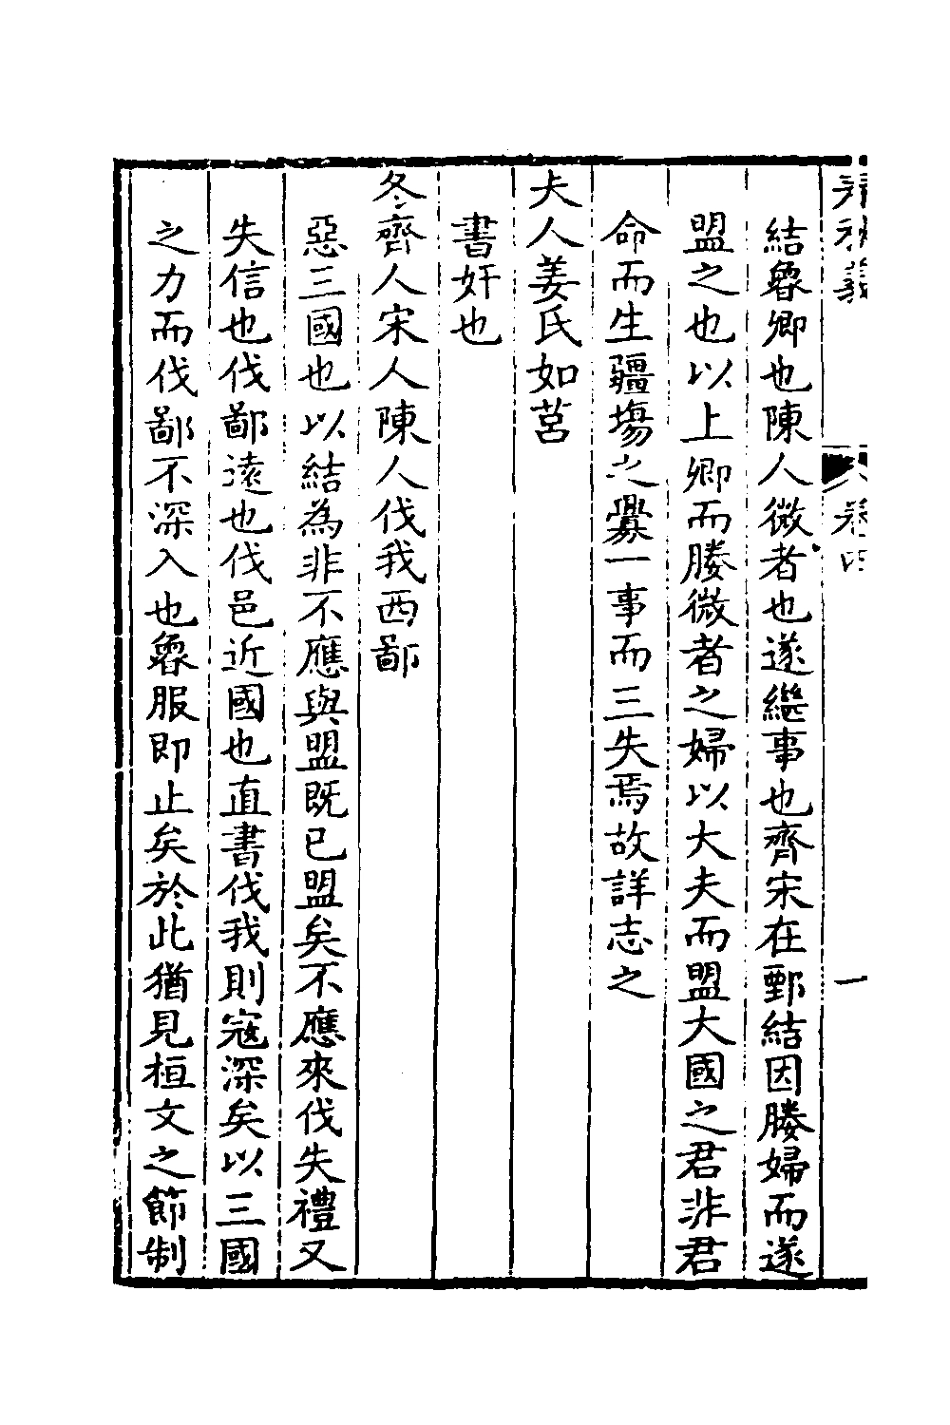 春秋義 卷四 一
結魯卿也陳人微者也遂繼事也齊宋在鄄結因媵婦而遂
盟之也以上卿而媵微者之婦以大夫而盟大國之君非君
命而生疆埸之釁一事而三失焉故詳志之
夫人姜氏如莒
書奸也
冬齊人宋人陳人伐我西鄙
惡三國也以結為非不應與盟既已盟矣不應來伐失禮又
失信也伐鄙遠也伐邑近國也直書伐我則寇深矣以三國
之力而伐鄙不深入也魯服即止矣於此猶見桓文之節制